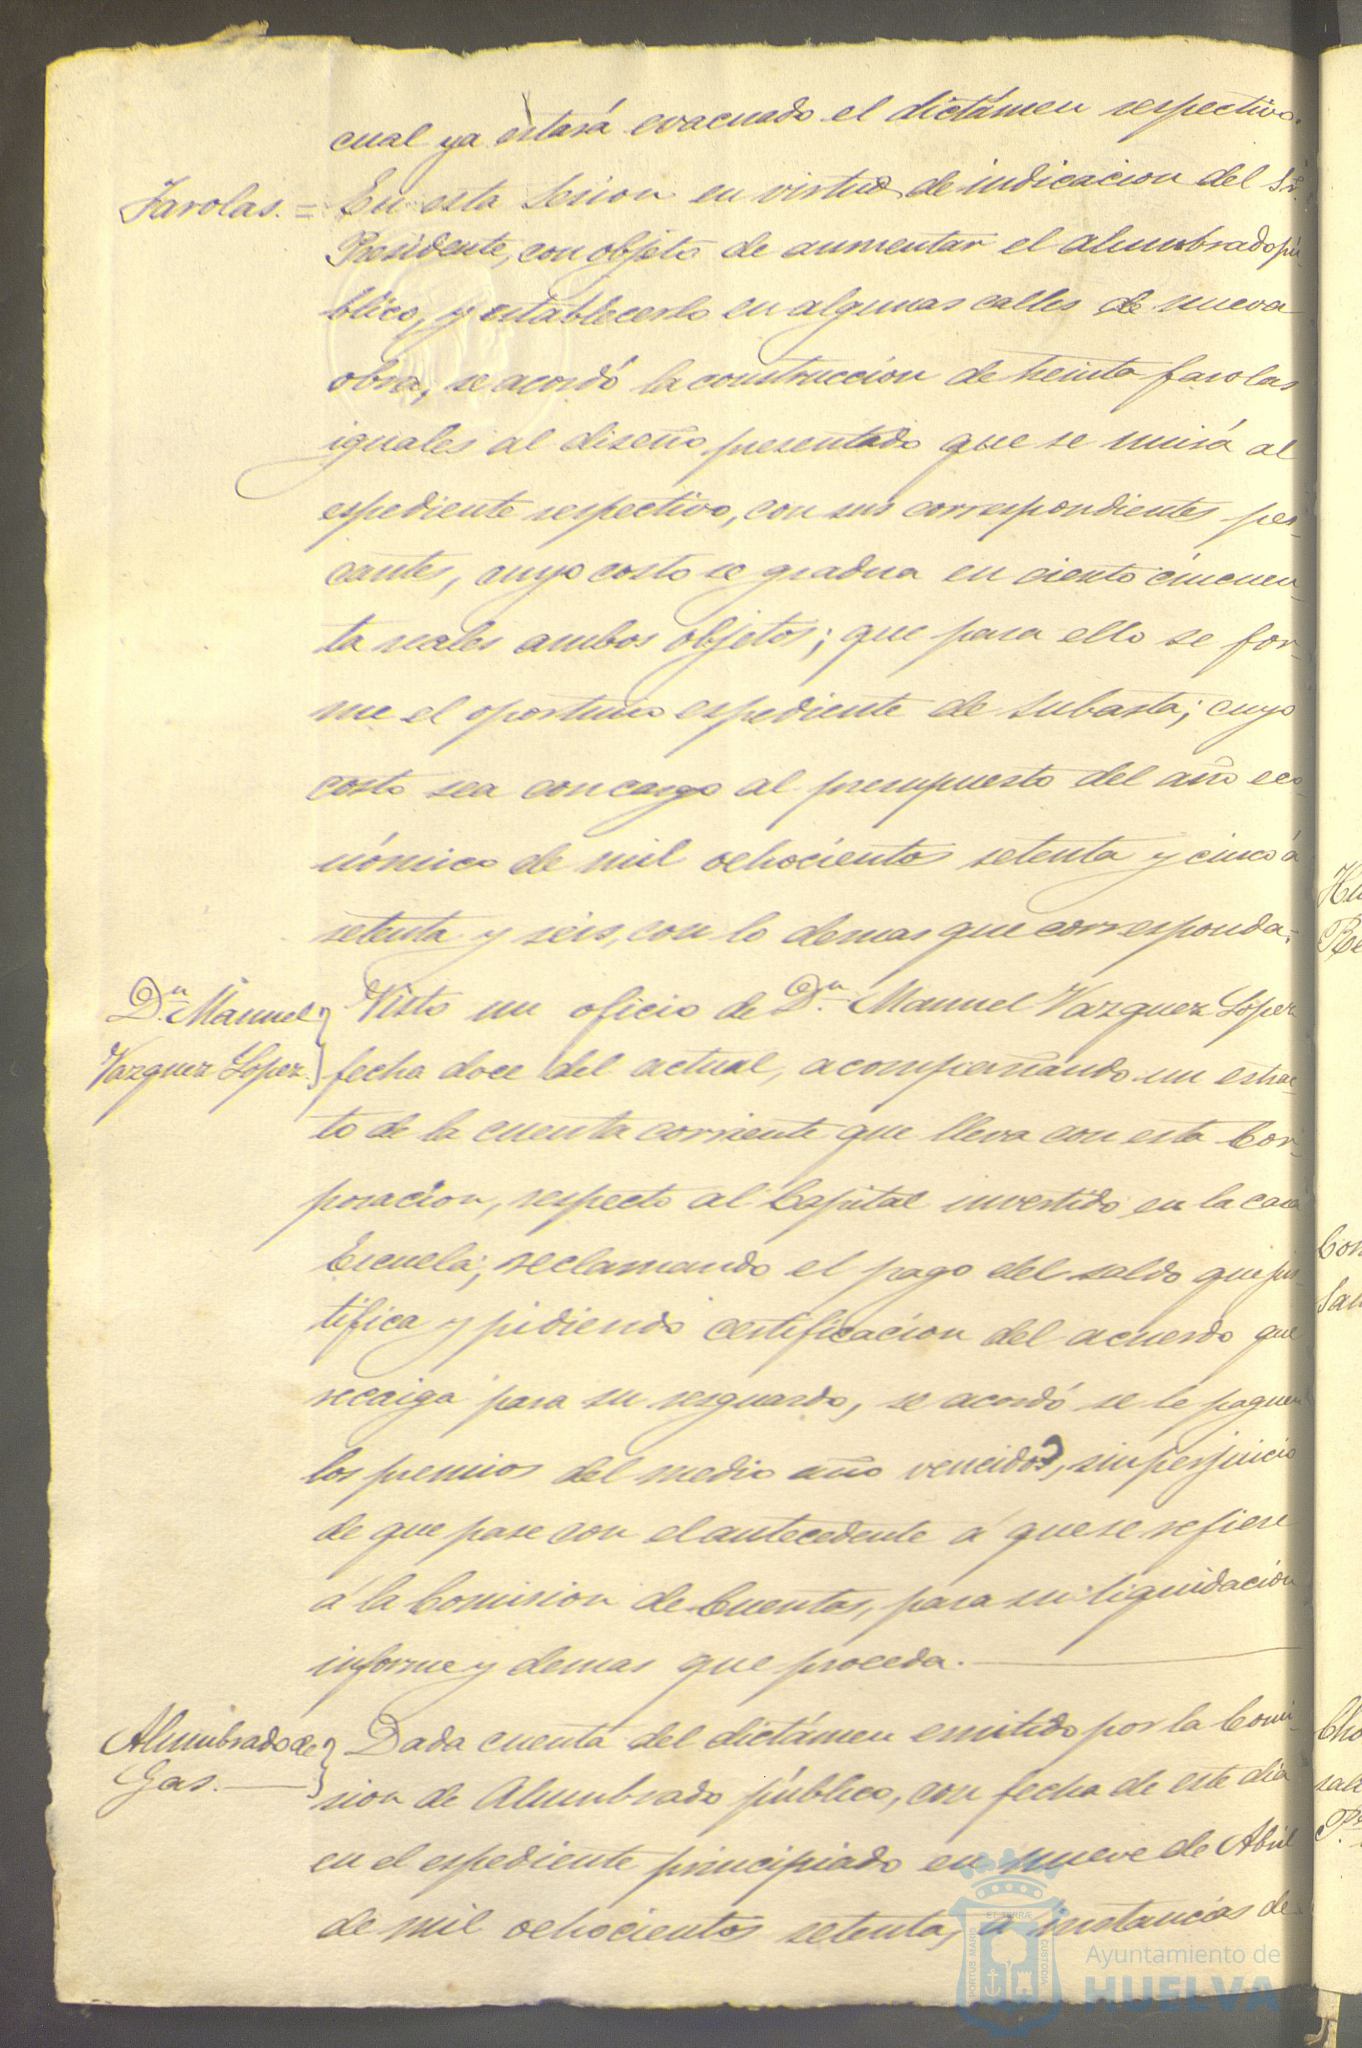 cual ya estará evacuado el dictámen respectivo.
Farolas. = En esta Sesion en virtud de indicacion del Sr.
Presidente, con objeto de aumentar el alumbrado pú
blico, y establecerlo en algunas calles de nueva
obra, se acordó la construccion de treinta farolas
iguales al diseño presentado que se unirá al
espediente respectivo, con sus correspondientes pes-
cantes, cuyo costo se gradua en ciento cincuen-
ta reales ambos objetos; que para ello se for-
me el oportuno espediente de subasta; cuyo
costo sea con cargo al presupuesto del año eco-
nómico de mil ochocientos setenta y cinco á
setenta y seis, con lo demas que corresponda.=
Dn. Manuel
Vazquez Lopez.
Visto un oficio de Dn. Manuel Vazquez López
fecha doce del actual, acompañando un estrac-
to de la cuenta corriente que lleva con esta Cor-
poracion, respecto al Capital invertido en la casa
Escuela; reclamando el pago del saldo que jus-
tifica y pidiendo certificacion del acuerdo que
recaiga para su resguardo, se acordó se le paguen
los premios del medio año vencido, sin perjuicio
de que pase con el antecedente á que se refiere
á la Comision de Cuentas, para su liquidación
informe y demas que proceda.
Alumbrado de
Gas.
Dada cuenta del dictámen emitido por la Comi-
sion de Alumbrado público, con fecha de este dia
en el espediente principiado en nueve de Abril
de mil ochocientos setenta, á instancias de
Ayuntamiento de
HUELVA
PORTUS MARIS
ET TERRÆ
CUSTODIA